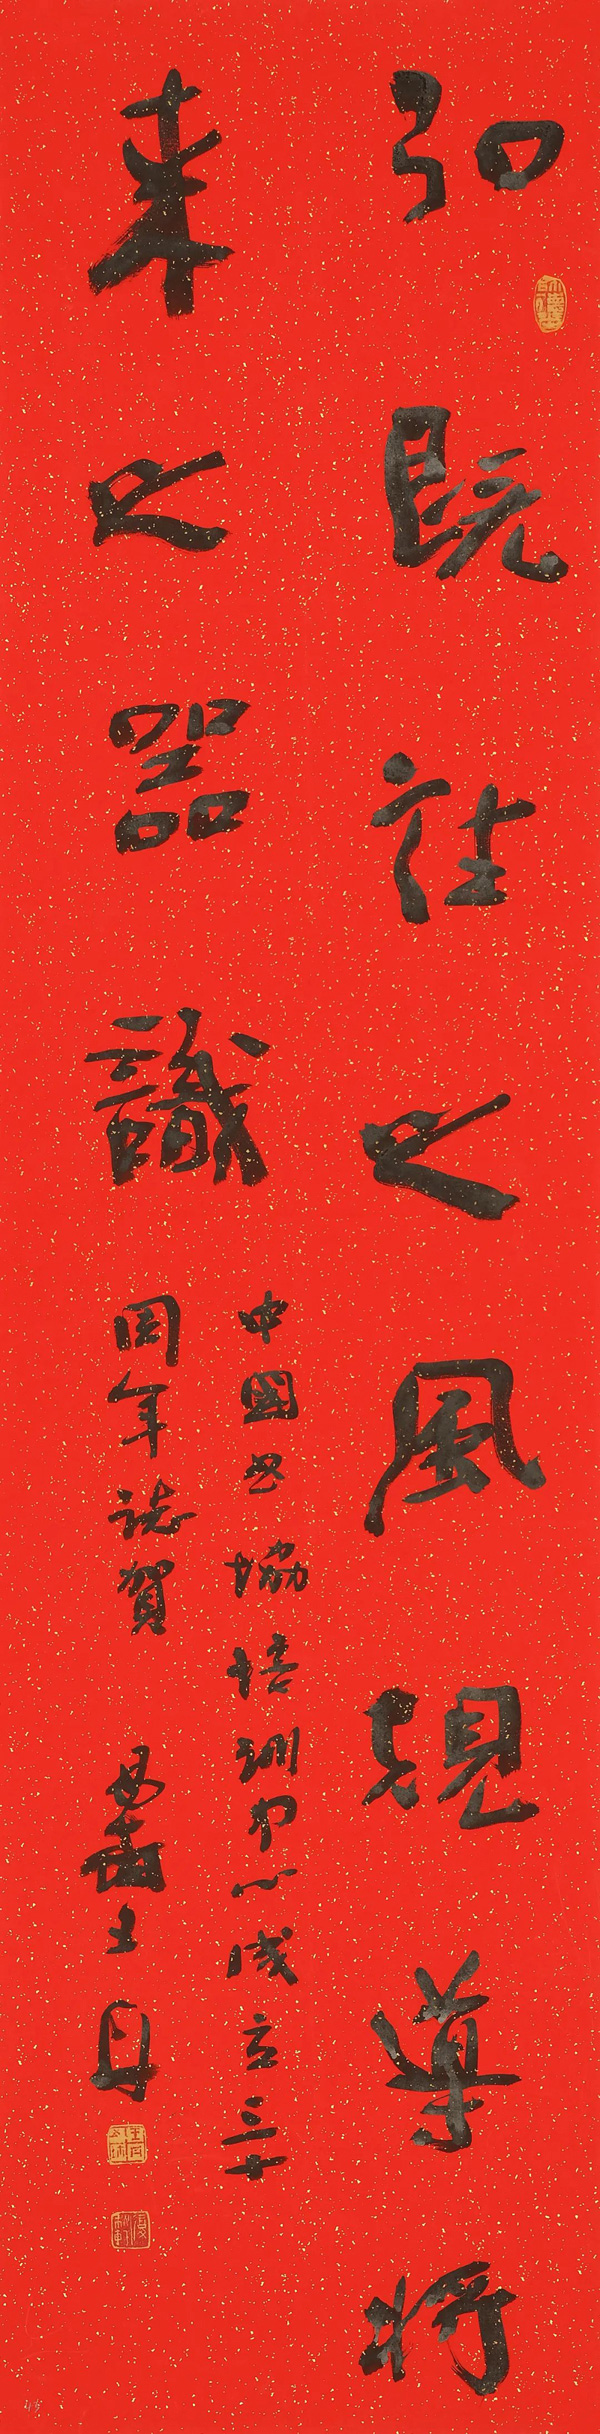 弘既往之風規導將
来之器識
中國書協培訓中心成立三十
周年誌賀
王丹